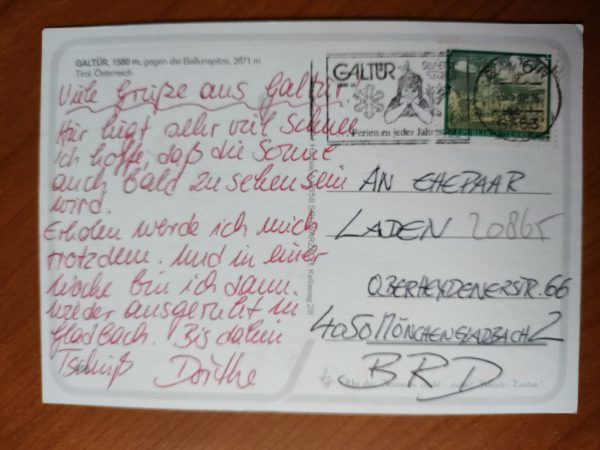 GALTÜR, 1580 m, gegen die Ballunspitze, 2671 m
Tirol, Österreich
Viele Grüße aus Galtür.
Hier liegt sehr viel Schnee
Ich hoffe, daß die Sonne
auch bald zu sehen sein
wird.
Erholen werde ich mich
trotzdem. Und in einer
Woche bin ich dann
wieder ausgeruht in
Gladbach. Bis dahin
Tschüß Dörthe
GALTÜR
Ferien zu jeder Jahres
REPUBLIK ÖSTERREICH
AN EHEPAAR
LADEN 20865
OBERHEYDENERSTR. 66
4050 MÖNCHENGLADBACH 2
BRD